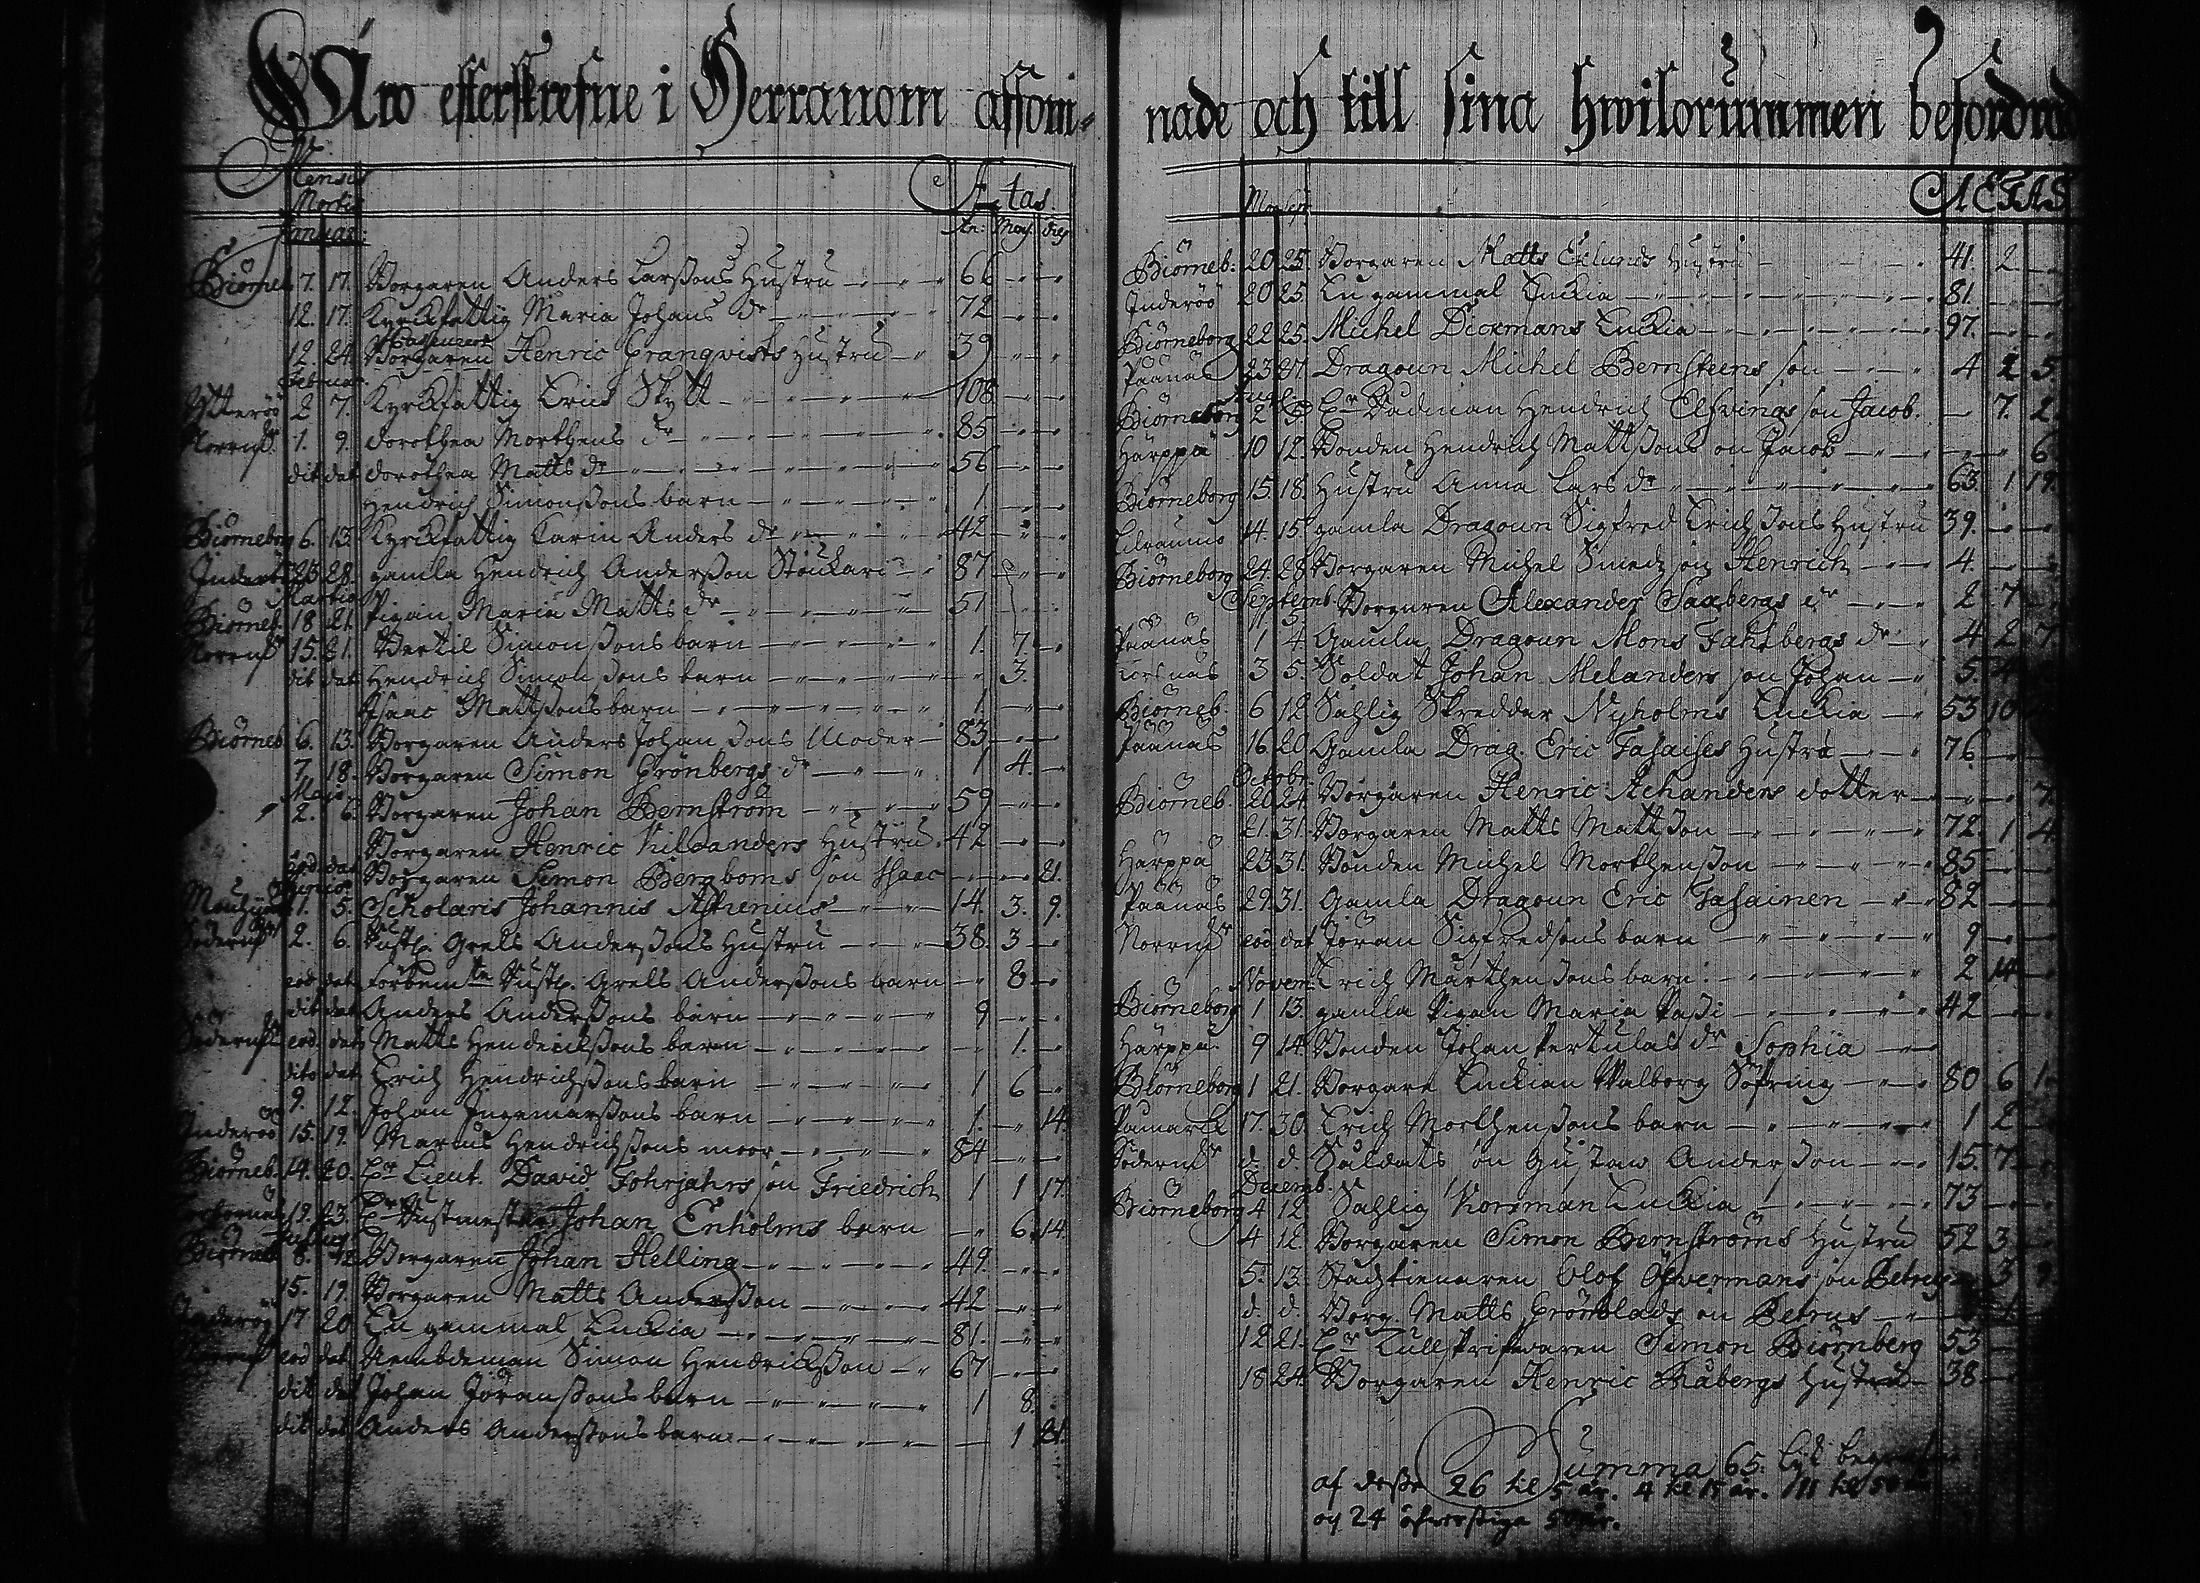 Äro efterskrefne i Herranom afsom-
Mensis
Mortis
Ætas.
Januar: An: Mens. dies
Biörneb 7. 17. Borgaren Anders Larßons Hustru 66
12. 17. Kyrckfattig Maria Johans dr 72
12 24. Borgaren Henric Granqwists Hustru 39
Februar.
Ytteröö 2 7. Kyrckfattig Erich Skytt 108
Norrm 1. 9. Dorothea Morthens dr 85
dit dat Dorothea Matts dr 56
Hendrich Simonßons barn 1
Biörneborg 6. 13. Kyrckfattig Karin Anders dr 42
Inderöö 23 28. gamla Hendrich Anderßon Stoukari 87
Martius
Biörneb. 18 21. Pigan Maria Matts dr 51
Norrm 15. 21. Bertil Simonßons barn 1. 7.
dit dat Hendrich Simonsons barn 3.
Isaac Mattßons barn 1
Biörneb 6. 13. Borgaren Anders Johansons Moder 83
7 18. Borgaren Simon Grönbergs dr 1 4.
Maius
2. 6. Borgaren Johan Bernström 59
Borgaren Henric Kiloanders Hustru 42
eod. dat Borgaren Simon Bergboms son Isaac 21.
Junius
1. 5. Scholaris Johannis Asprenius 14. 3. 9.
Söderm 2. 6. Rustl. Grels Andersons Hustru 38. 3
eod dat förbem:te Rustl. Grels Anderßons barn 8
dit dat Anders Anderßons barn 9
Söderm eod. dat Matts Hendericksons barn 1.
dito dat Erich Hendrichßons barn 1 6
9. 12. Johan Ingemarßons barn 1. 14.
Inderöö 15. 19. Marcus Hendrichßons moor 84
Biörneb. 14. 20. Hr Lieut. David Fohrjahrs son Friedrich 1 1 17.
19. 23. Hr Rustmestar Johan Enholms barn 6. 14.
Julius
Biörneb 8. 12 Borgaren Johan Helling 49.
15. 19. Borgaren Matts Anderßon 42
Inderöö 17 20 En gammal Enckia 81.
Norrm eod dat Nembdeman Simon Hendrickßon 67
dit dat Johan Jöranßons barn 1 8.
dit dat Anders Anderßons barn 1 21.
nade och till sina hwilorummen befordrade
Mensis
AETAS
Biörneb: 20 25. Borgaren Matts Eklunds Hustru 41. 2
Inderöö 20 25. En gammal Enckia 81.
Biörneborg 22 25. Michel Dickmans Enckia 97.
Påånäs 23 27 Dragoun Michel Bernsteens son 4 2 5.
Aug:
Biörneborg 2 5 Hr Rådman Hendrich Elfvings son Jacob. 7. 2
Härppä 10 12. Bonden Hendrich Mattßons son Jacob 6
Biörneborg 15. 18. Hustru Anna Lars dr 63. 1 19.
Lilraumo 14. 15. gamla Dragoun Sigfred Erichsons Hustru 39.
Biörneborg 24. 28 Borgaren Michel Smedz son Henrich 4.
Septemb Borgaren Alexander Saxbergs dr 2 7
Påånäs 1 4. Gamla Dragoun Mons Fahlbergs dr 4 2 7
Torsnäs 3 5. Soldat Johan Melanders son Johan 5. 4
Biörneb. 6 12 Sahlig Skreddar Nyholms Enckia 53 10
Påånäs 16 20 Gamla Drag. Eric Fasaises Hustru 76
Octobr.
Biörneb. 20 24. Borgaren Henric Achanders dotter 7
21. 31. Borgaren Matts Mattson 72. 1 4
Härppä 23 31. Bonden Michel Morthenßon 85
Påånäs 29. 31. Gamla Dragoun Eric Fasainen 82
Norrm eod dat Jöran Sigfredsons barn 9
Novem. Erich Mårthensons barn. 2 14
Biörneborg 1 13. gamla Pigan Maria Paßi 42
Härppä 9 14 Bonden Johan Pertulas dr Sophia
Biörneborg 1 21. Borgare Enckian Walborg Söfring 80 6 1
Påmarck 17. 30. Erich Morthensons barn 1 2
Söderm d. d. Soldats son Gustaw Anderson 15. 7
Decemb.
Biörneborg 4 12 Sahlig Korsman Enckia 73
4 12. Borgaren Simon Bernströms Hustru 52 3
5. 13. Stadztienaren Olof Öfwermans son Petrus 3 9
d. d. Borg. Matts Grönblads son Petrus
12 21. Hr Tullskrifwaren Simon Biörnberg 53
18 24. Borgaren Henric Råbergs Hustru 38
Summa 65. lijk begrafne
af deße 26 til 5 år. 4 til 15 år. 11 til 50 år
och 24 öfwerstiga 50 år.